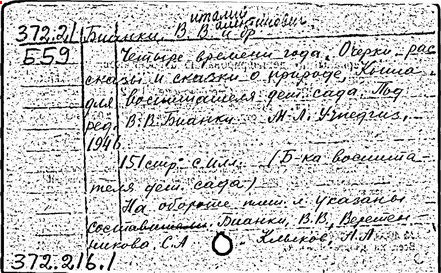 италий
алентинович
372.21 Бианки, В. В. и др
Б59 Четыре времени года. Очерки рас-
сказы и сказки о природе, Книга
для воспитателя дет. сада. Под
ред. В. В. Бианки М-Л. Учпедгиз,
1946
151 стр. с илл. (Б-ка воспита-
теля дет. сада)
На обороте тит. л. указаны
составители Бианки, В. В., Веретен-
никова, С.А. Клыков, Л.А.
372.216.1